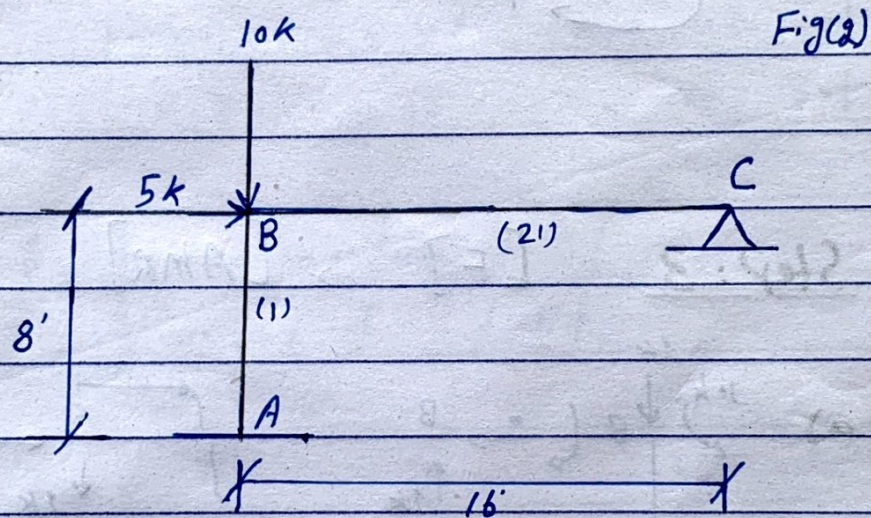 10k
Fig(2)
5k
C
B
(2I)
(I)
8'
A
16'